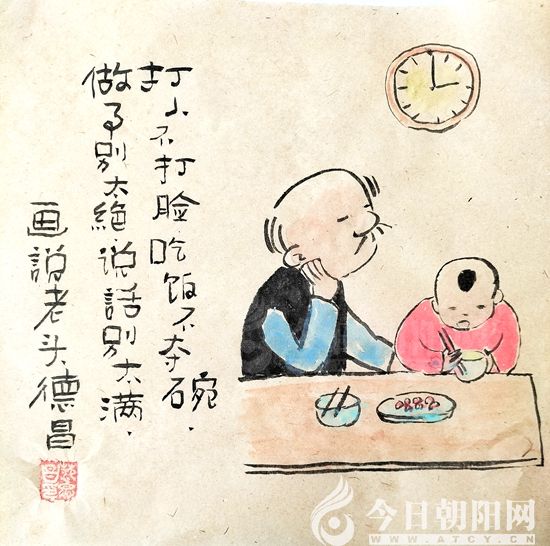 打人不打脸吃饭不夺碗.
做事别太絶.説話别太满.
画説老头德昌
今日朝阳网
WWW.ATCY.CN